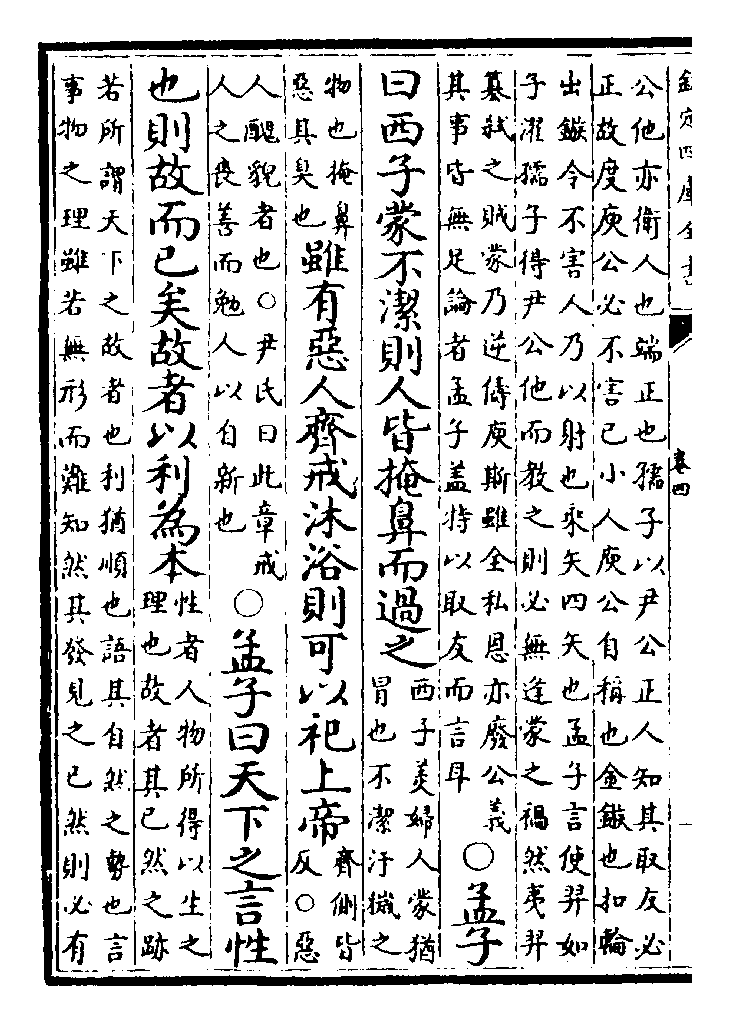 欽定四庫全書
卷四
公他亦衛人也端正也孺子以尹公正人知其取友必
正故度庾公必不害己小人庾公自稱也金鏃也扣輪
出鏃令不害人乃以射也乘矢四矢也孟子言使羿如
子濯孺子得尹公他而教之則必無逢蒙之禍然夷羿
篡弑之賊蒙乃逆儔庾斯雖全私恩亦廢公義
其事皆無足論者孟子蓋特以取友而言耳
○孟子
曰西子蒙不潔則人皆掩鼻而過之
西子美婦人蒙猶
冒也不潔汙穢之
物也掩鼻
惡其臭也
雖有惡人齊戒沐浴則可以祀上帝
齊側皆
反○惡
人醜貌者也○尹氏曰此章戒
人之喪善而勉人以自新也
○孟子曰天下之言性
也則故而已矣故者以利為本
性者人物所得以生之
理也故者其已然之跡
若所謂天下之故者也利猶順也語其自然之勢也言
事物之理雖若無形而難知然其發見之已然則必有